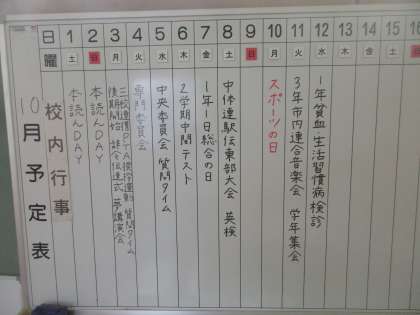 10月予定表
校内行事
日 1 2 3 4 5 6 7 8 9 10 11 12 13 14 15 16
曜 土 日 月 火 水 木 金 土 日 月 火 水 木 金 土 日
本読んDAY
本読んDAY
後期開始 辞令伝達式 夢講演会
専門委員会
中央委員会 質問タイム
2学期中間テスト
1年1日総合の日
中体連駅伝東部大会 英検
スポーツの日
3年市内連合音楽会 学年集会
1年貧血・生活習慣病検診